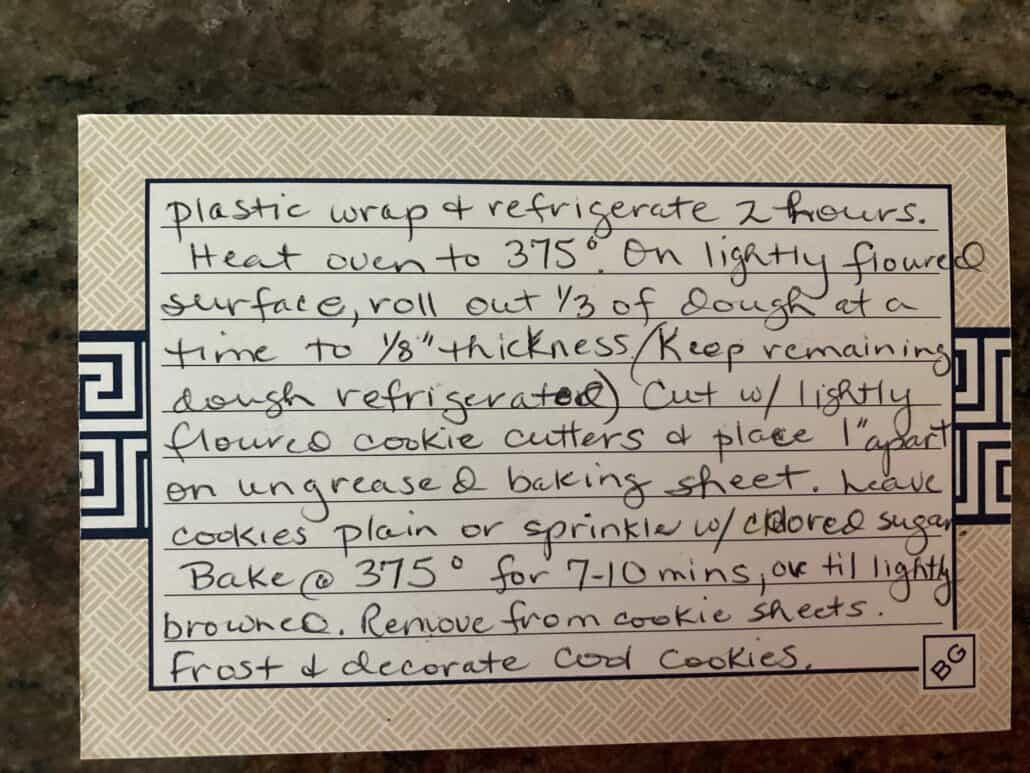 plastic wrap & refrigerate 2 hours.
Heat oven to 375°. On lightly floured
surface, roll out 1/3 of dough at a
time to 1/8" thickness (Keep remaining
dough refrigerated) Cut w/ lightly
floured cookie cutters & place 1" apart
on ungreased baking sheet. Leave
cookies plain or sprinkle w/ colored sugar.
Bake @ 375° for 7-10 mins, or til lightly
browned. Remove from cookie sheets.
Frost & decorate cool cookies.
BG